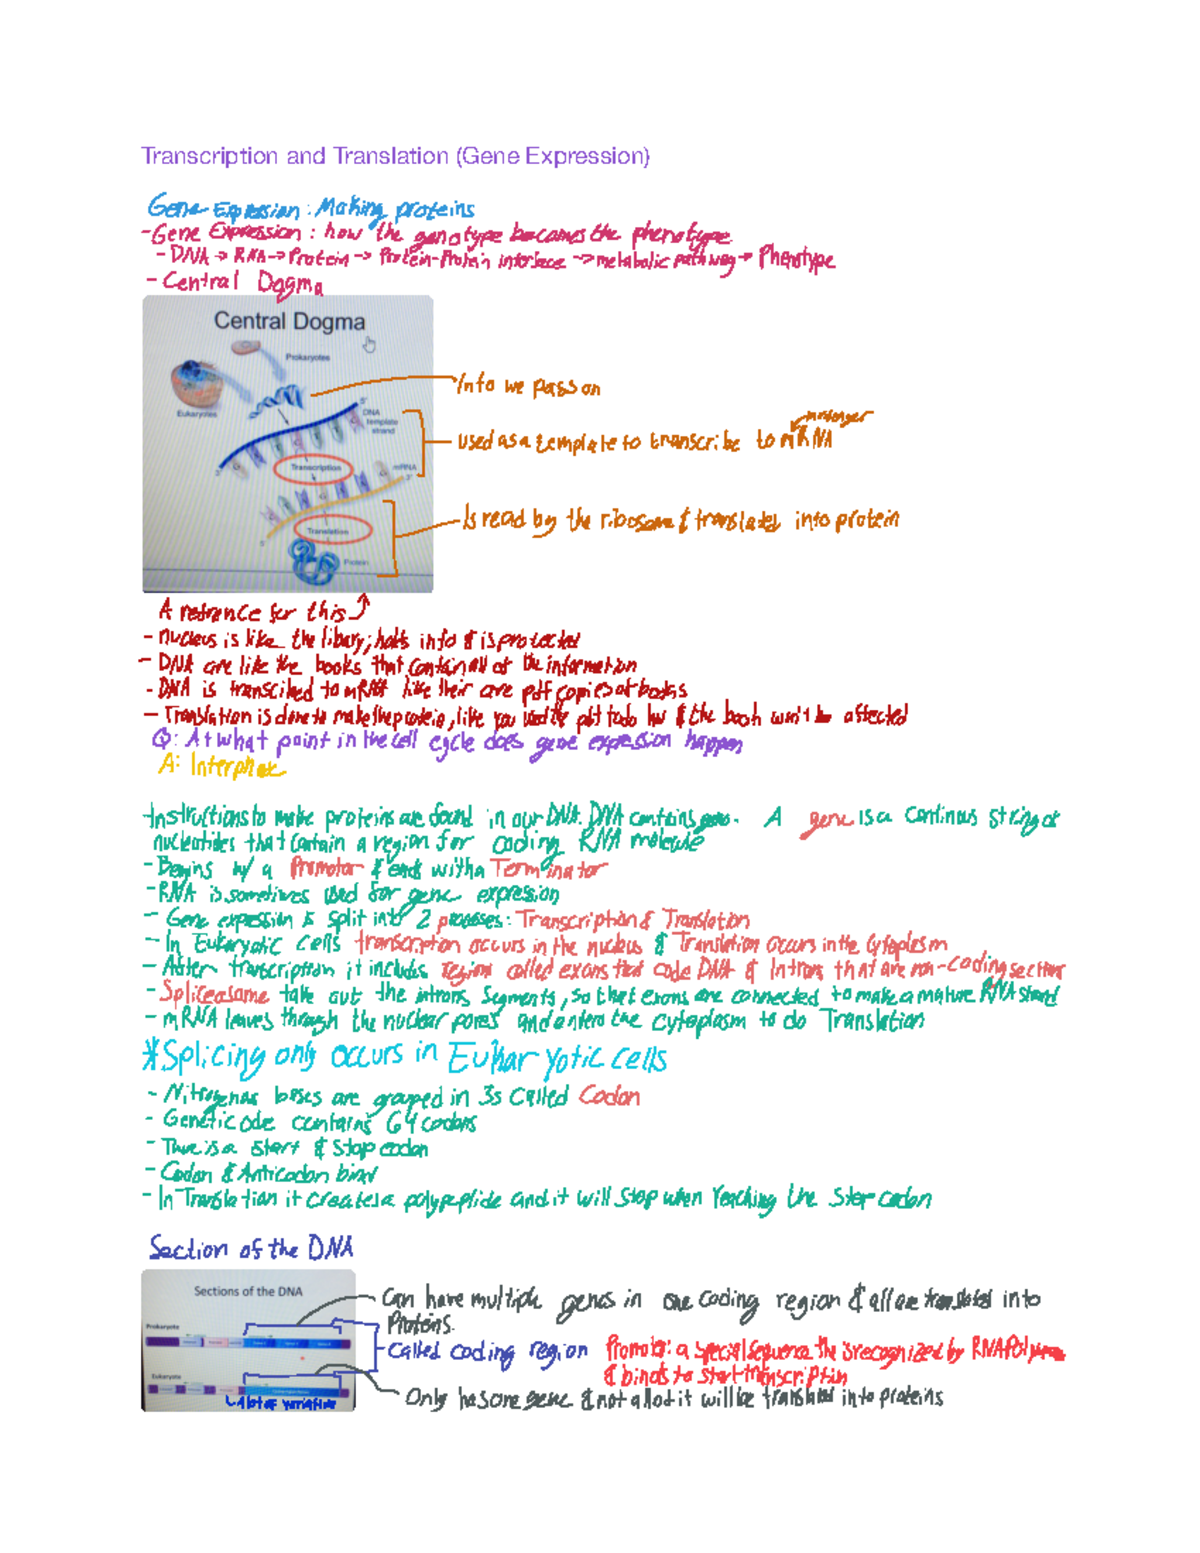 Transcription and Translation (Gene Expression)
Gene Expression: Making proteins
-Gene Expression: how the genotype becomes the phenotype
- DNA → RNA → Protein → Protein-Protein interface → metabolic pathway → Phenotype
- Central Dogma
Central Dogma
Prokaryotes
Eukaryotes
Info we pass on
3'
DNA
template
strand
messenger
used as a template to transcribe to mRNA
5'
Transcription
mRNA
3'
Is read by the ribosome & translated into protein
Translation
5'
Protein
A refrence for this
- nucleus is like the libary; holds info & is protected
- DNA are like the books that contain all of the information
- DNA is transcribed to mRNA like their are pdf copies of books
- Translation is done to make the protein, like you used the pdf to do hw & the book won't be affected
Q: At what point in the cell cycle does gene expression happen
A: Interphase
-Instructions to make proteins are found in our DNA. DNA contains genes. A gene is a continous string of
nucleotides that contain a region for coding RNA molecule
- Begins w/ a Promotor & ends with a Terminator
- RNA is sometimes used for gene expression
- Gene expression is split into 2 processes: Transcription & Translation
- In Eukaryotic cells transcription occurs in the nucleus & Translation occurs in the Cytoplasm
- After transcription it includes region called exons that code DNA & Introns that are non-coding sections
- Spliceasome take out the introns segments, so that exons are connected to make a mature RNA strand
- mRNA leaves through the nuclear pores and enters the cytoplasm to do Translation
*Splicing only occurs in Eukaryotic cells
- Nitrogenous bases are grouped in 3s called Codon
- Genetic code contains 64 codons
- There is a start & stop codon
- Codon & Anticodon bind
- In Translation it creates a polypeptide and it will stop when reaching the stop codon
Section of the DNA
Sections of the DNA
Can have multiple genes in one coding region & all are translated into
Proteins.
Prokaryote
Called coding region
Promotor: a special sequence the is recognized by RNA Polymerase
& binds to start transcription
Eukaryote
Only has one gene & not all of it will be translated into proteins
A lot of variation